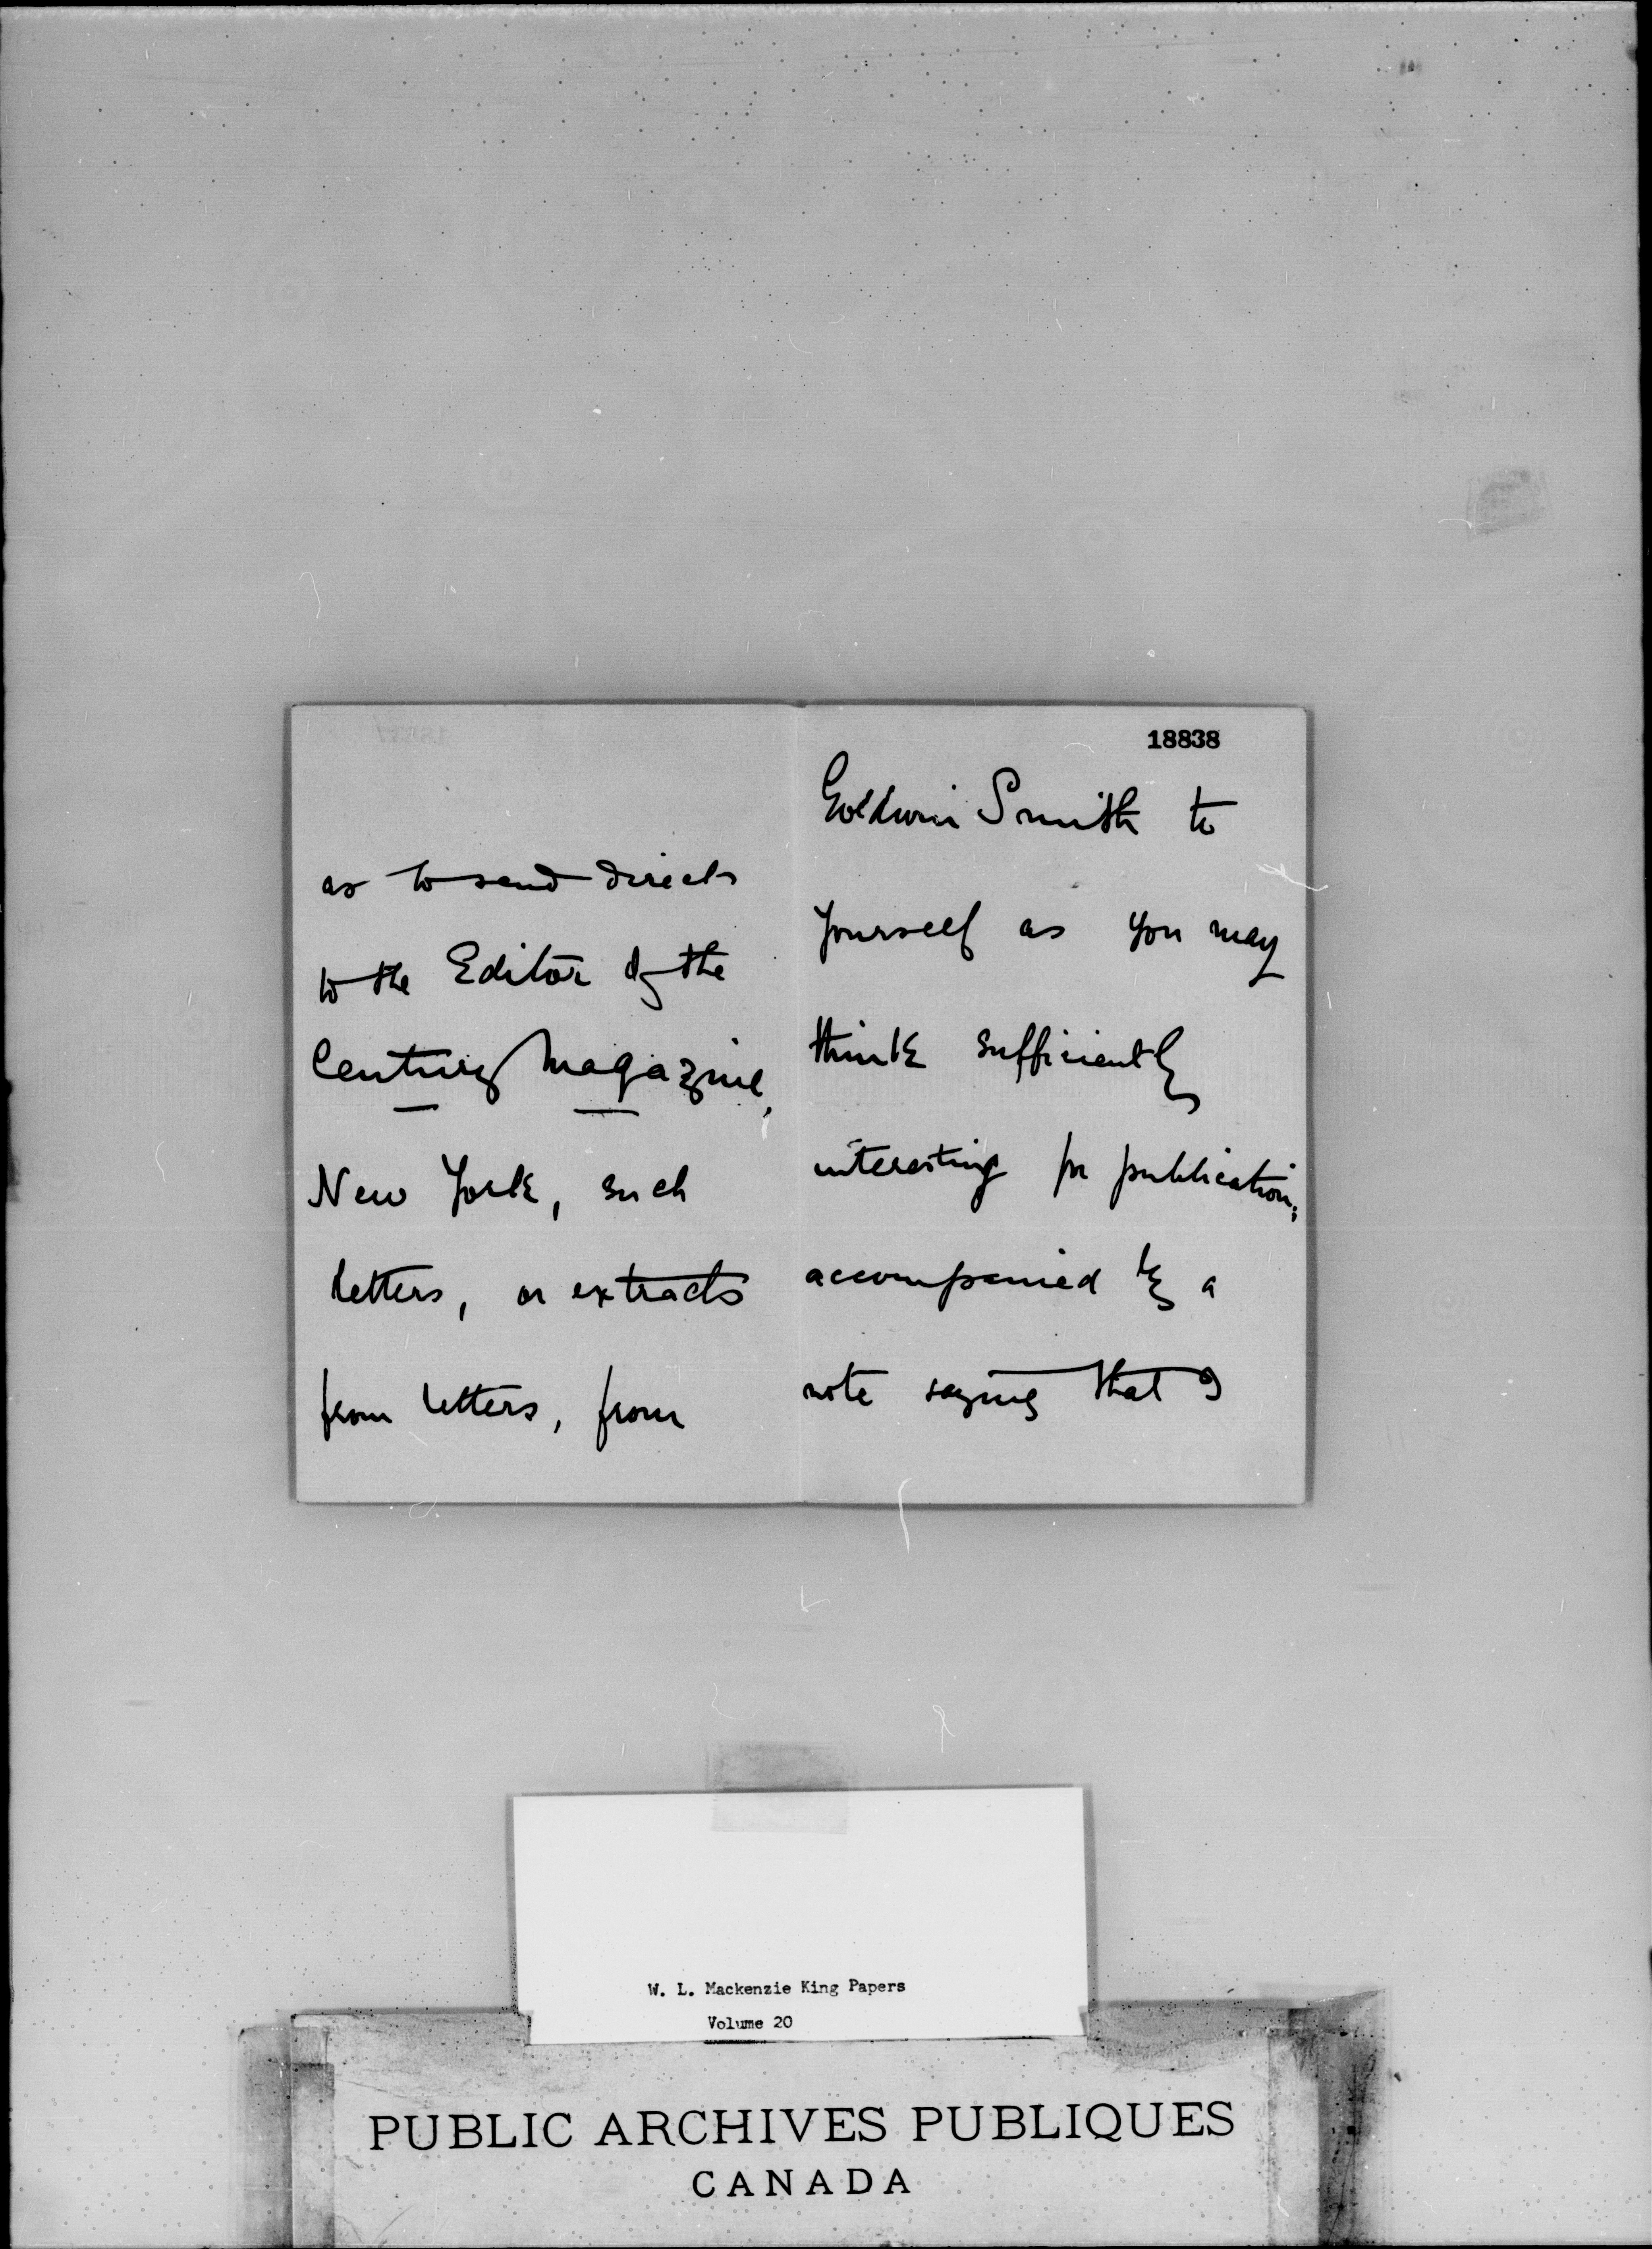 as to send direct
to the Editor of the
Century Magazine,
New York, such
letters, or extracts
from letters, from
18838
Goldwin Smith to
yourself as you may
think sufficiently
interesting for publication;
accompanied by a
note saying that I
W. L. Mackenzie King Papers
Volume 20
PUBLIC ARCHIVES PUBLIQUES
CANADA